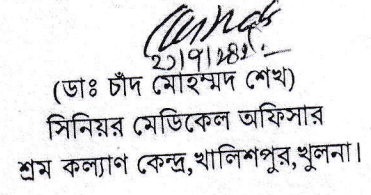 (ডাঃ চাঁদ মোহম্মদ শেখ)
সিনিয়র মেডিকেল অফিসার
শ্রম কল্যাণ কেন্দ্র,খালিশপুর,খুলনা।